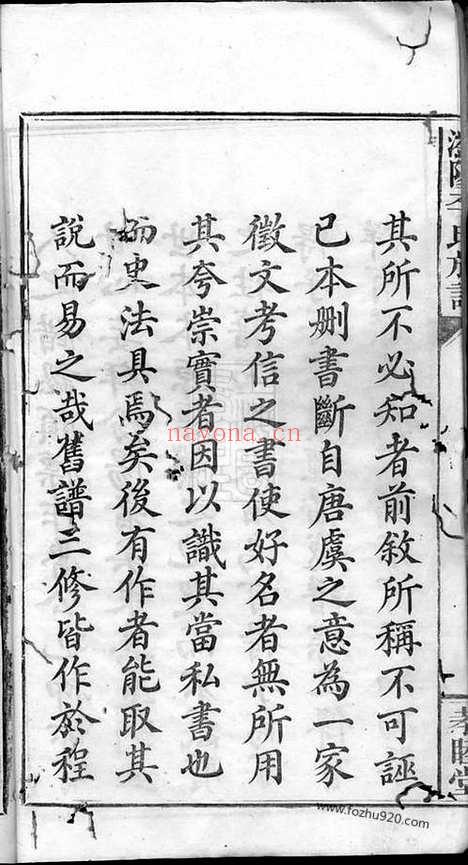 李氏族譜
其所不必知者前敘所稱不可誣
已本刪書斷自唐虞之意為一家
徵文考信之書使好名者無所用
其夸崇實者因以識其當私書也
而史法具焉矣後有作者能取其
說而易之哉舊譜三修皆作於程
孝睦堂
nayona.cn
www.fozhu920.com